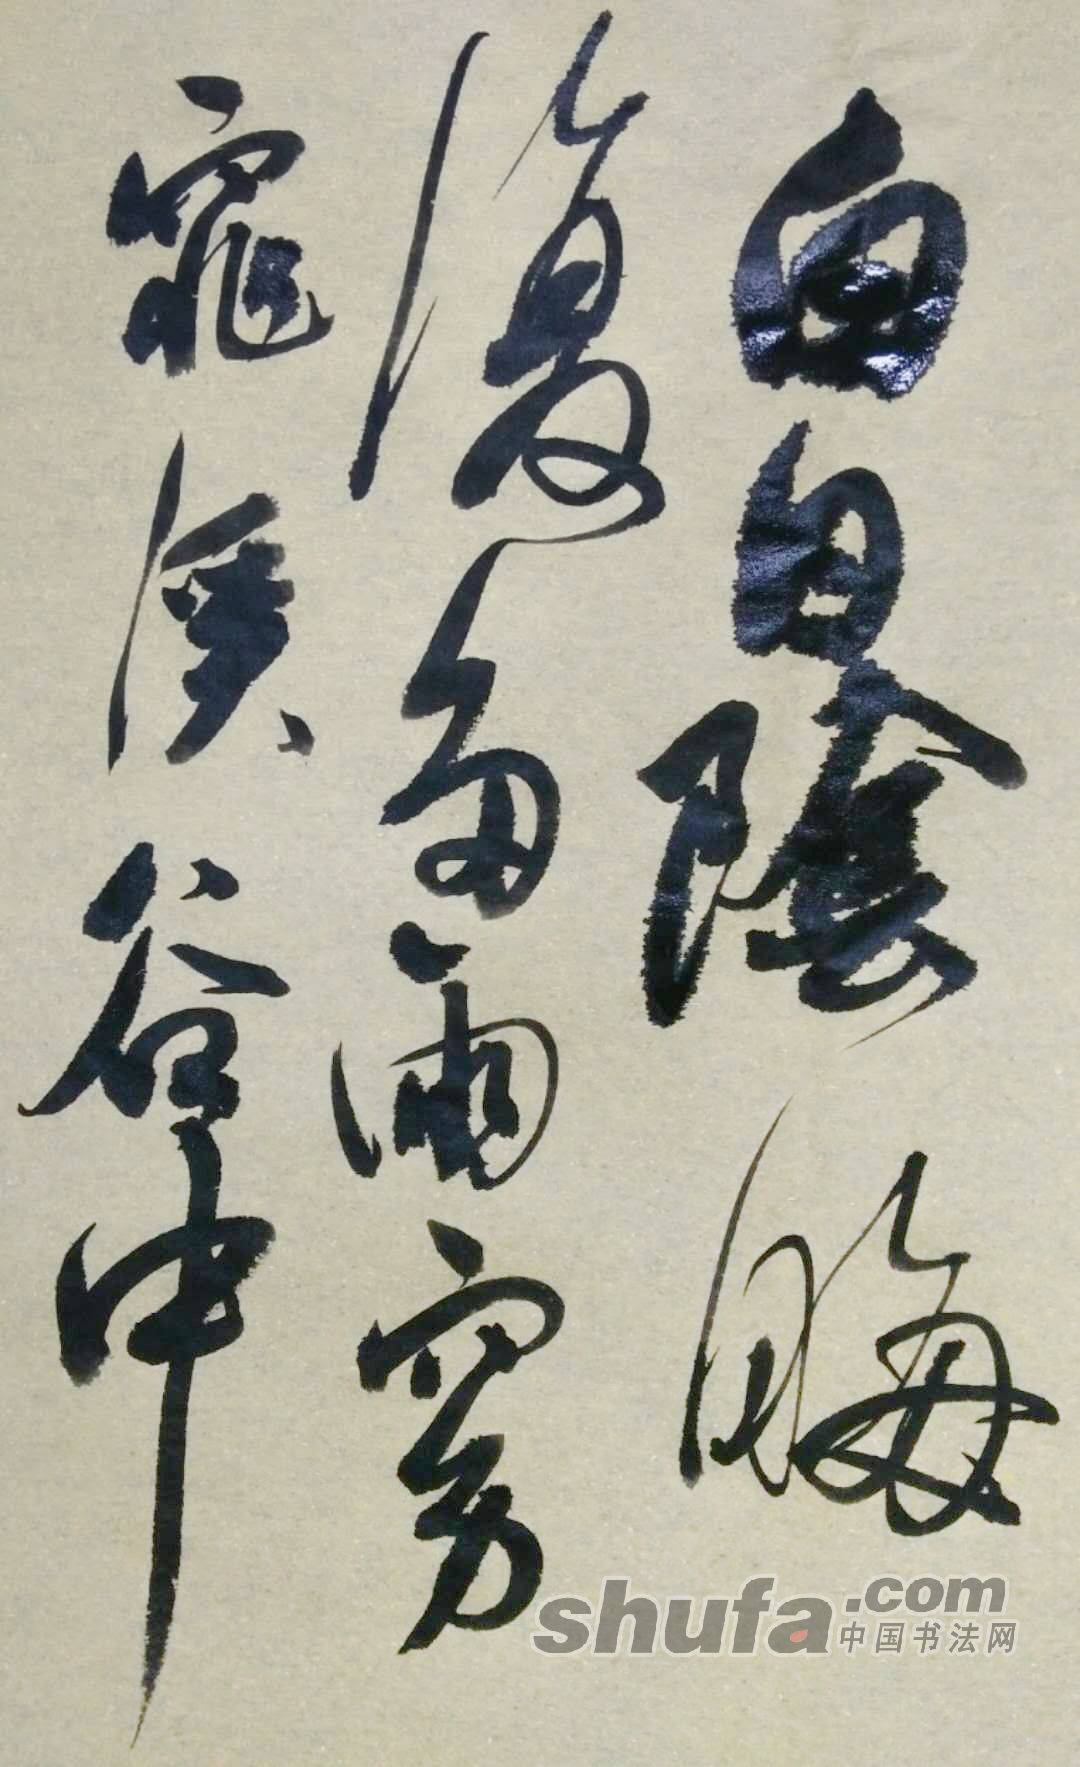 日陰晦
復多雨窈
窕溪谷中
shufa.com
中国书法网